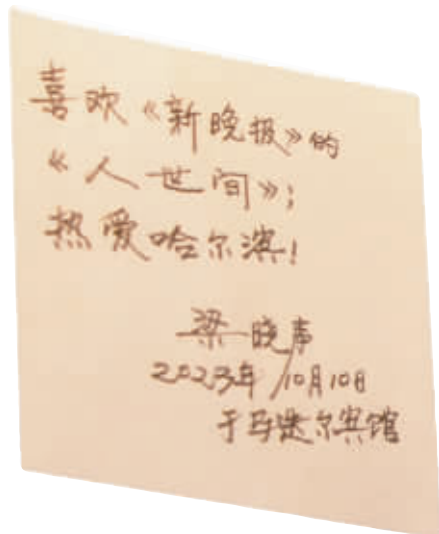 喜欢《新晚报》的
《人世间》;
热爱哈尔滨!
梁晓声
2023年10月10日
于马迭尔宾馆